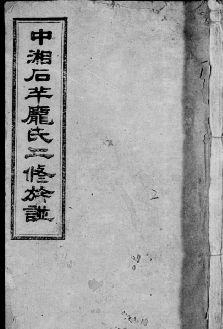 中湘石羊龐氏三修族譜